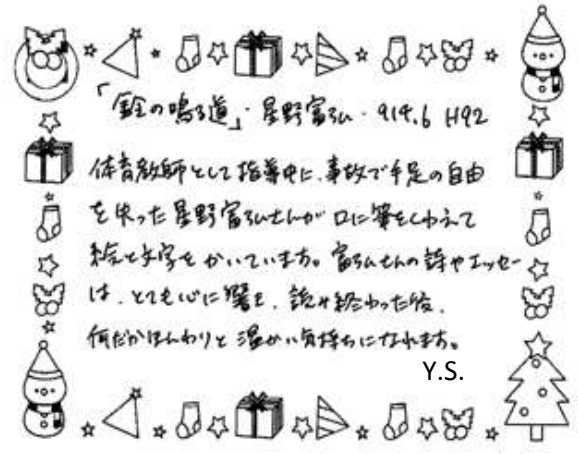 「鈴の鳴る道」・星野富弘・914.6 H92
体育教師として指導中に、事故で手足の自由
を失った星野富弘さんが口に筆をくわえて
絵と文字をかいています。富弘さんの詩やエッセー
は、とても心に響き、読み終わった後、
何だかほんわりと温かい気持ちになれます。
Y.S.